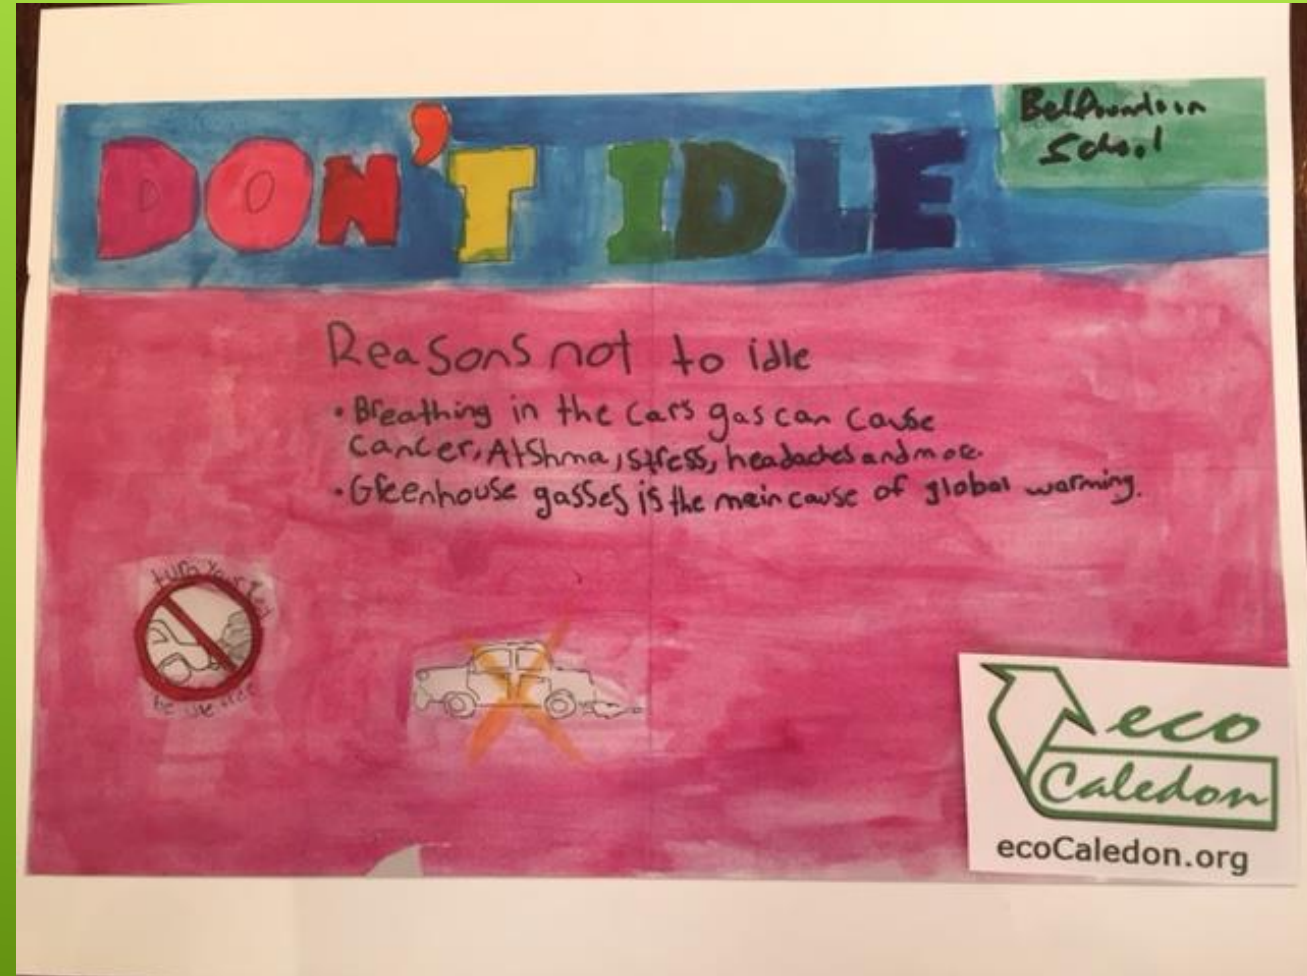 DON'T IDLE
Belfountain
School
Reasons not to idle
• Breathing in the cars gas can cause
cancer, Atshma, stress, headaches and more.
• Greenhouse gasses is the main cause of global warming.
turn your key
be idle free
eco
Caledon
ecoCaledon.org